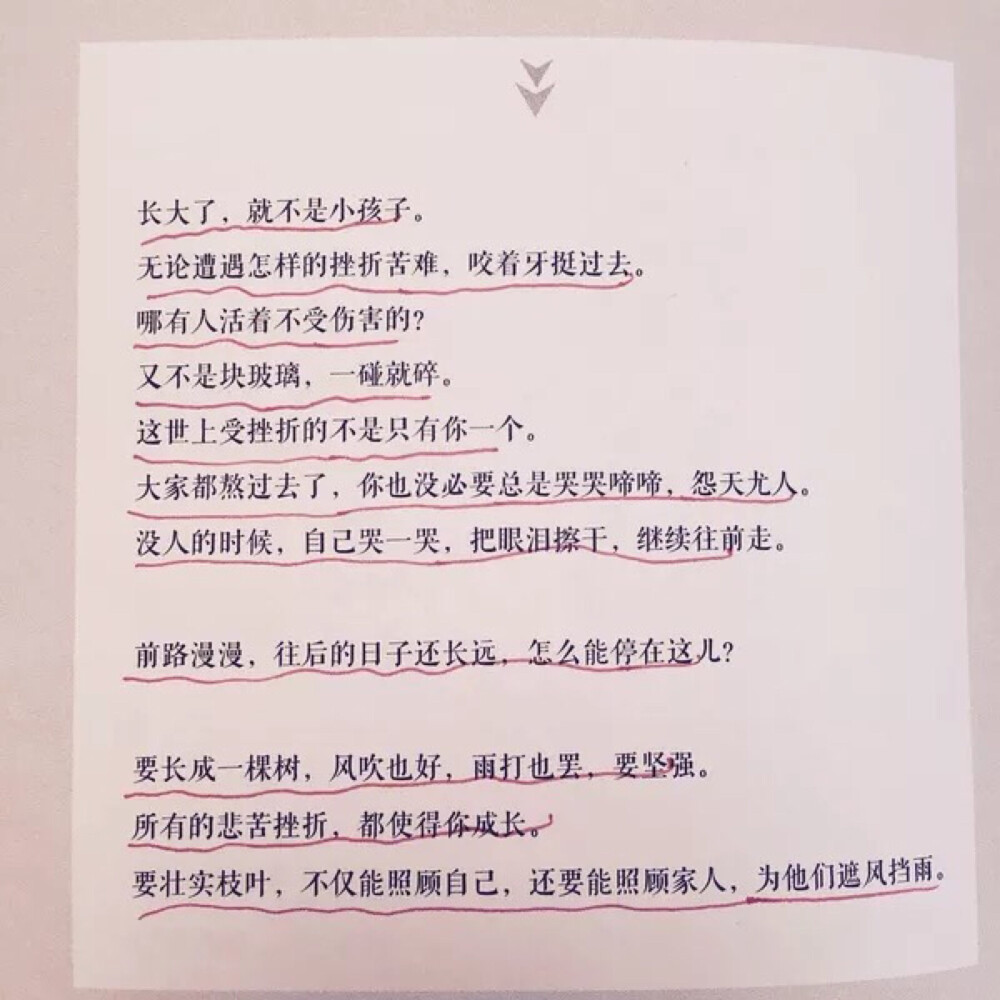 长大了，就不是小孩子。
无论遭遇怎样的挫折苦难，咬着牙挺过去。
哪有人活着不受伤害的？
又不是块玻璃，一碰就碎。
这世上受挫折的不是只有你一个。
大家都熬过去了，你也没必要总是哭哭啼啼，怨天尤人。
没人的时候，自己哭一哭，把眼泪擦干，继续往前走。
前路漫漫，往后的日子还长远，怎么能停在这儿？
要长成一棵树，风吹也好，雨打也罢，要坚强。
所有的悲苦挫折，都使得你成长。
要壮实枝叶，不仅能照顾自己，还要能照顾家人，为他们遮风挡雨。